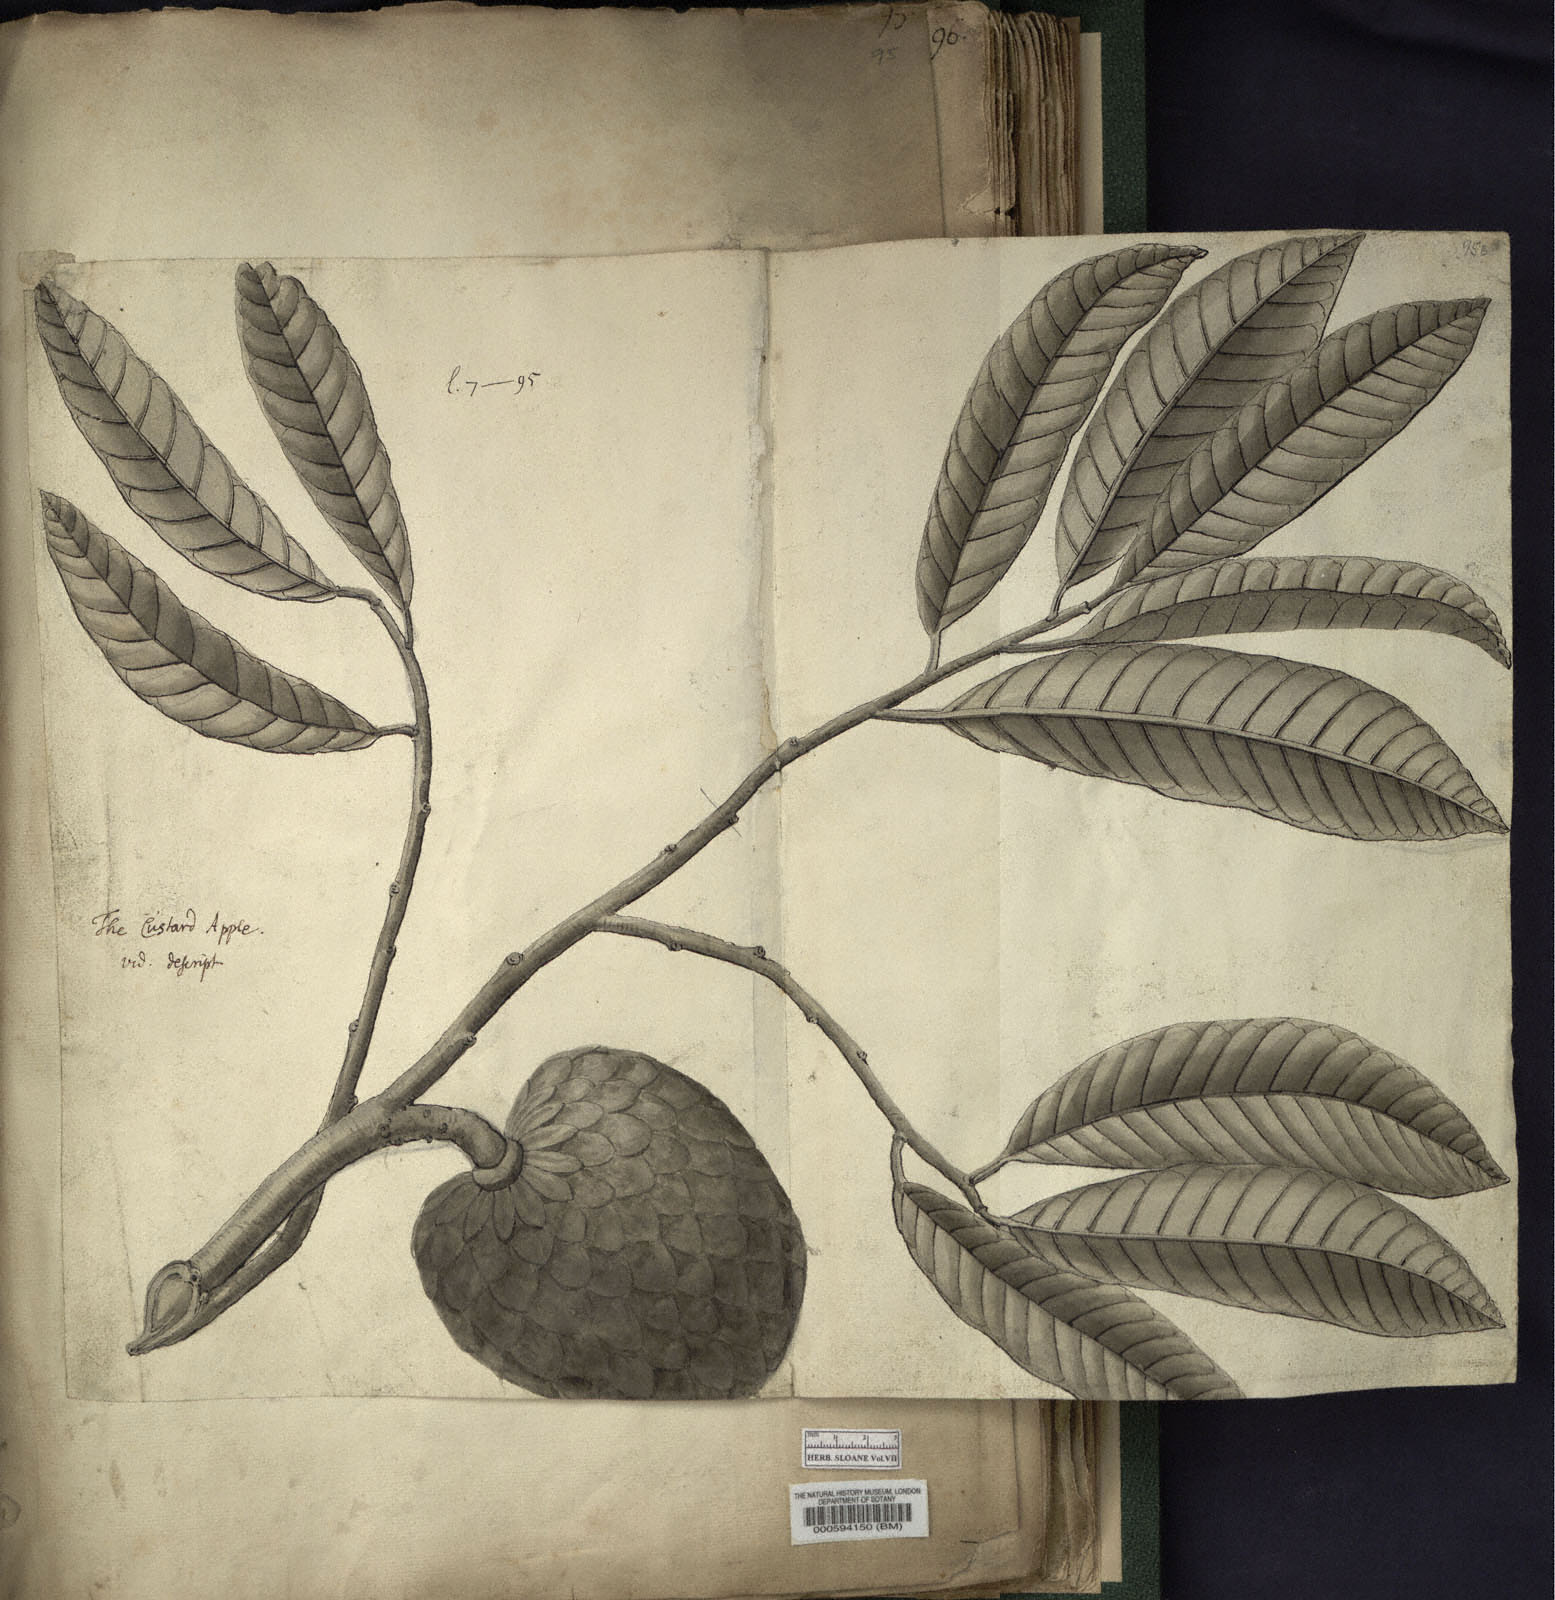 95
96.
95b
l. 7 — 95
The Custard Apple.
vid. descript
HERB. SLOANE Vol.VII
THE NATURAL HISTORY MUSEUM, LONDON
DEPARTMENT OF BOTANY
000594150 (BM)